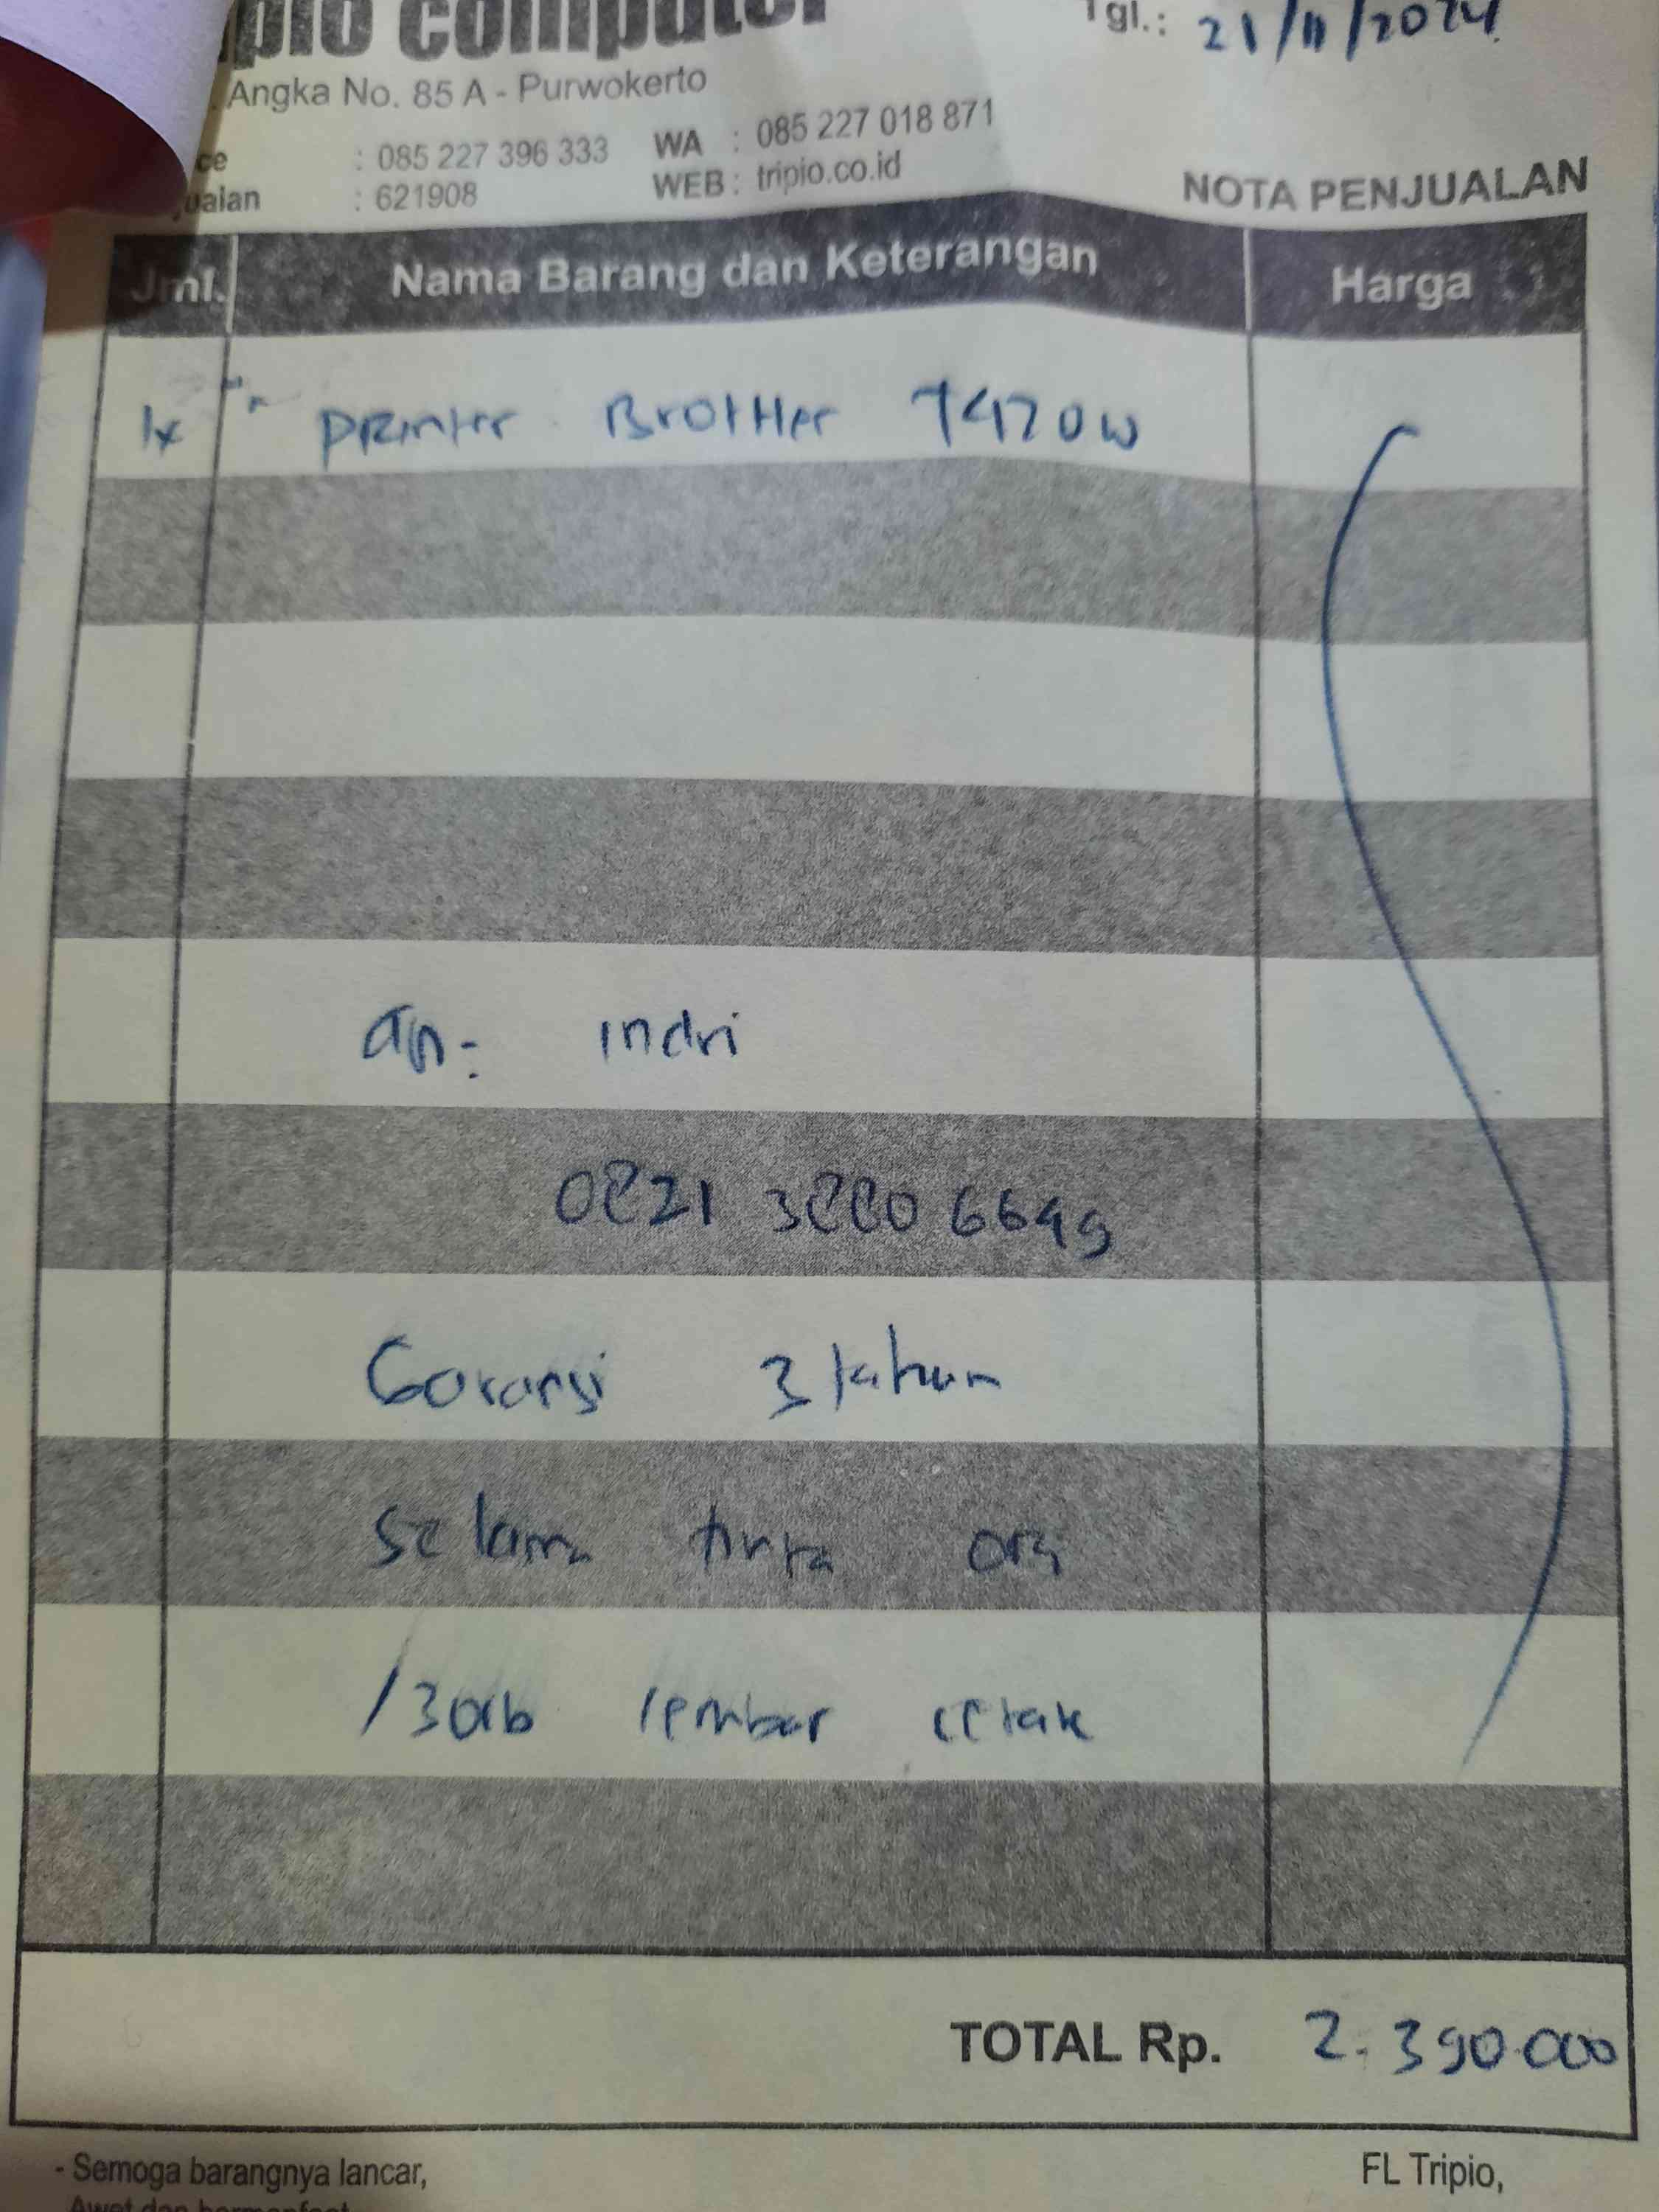 pio computer
Tgl.: 21/11/2024
. Angka No. 85 A - Purwokerto
ce : 085 227 396 333 WA : 085 227 018 871
jualan : 621908 WEB : tripio.co.id
NOTA PENJUALAN
Jml. Nama Barang dan Keterangan Harga
1x printer Brother T420W
an: indri
0821 3880 6649
Goransi 3 tahun
selama tinta ori
/30rb lembar cetak
TOTAL Rp. 2.390.000
- Semoga barangnya lancar,
FL Tripio,
Awet dan bermanfaat